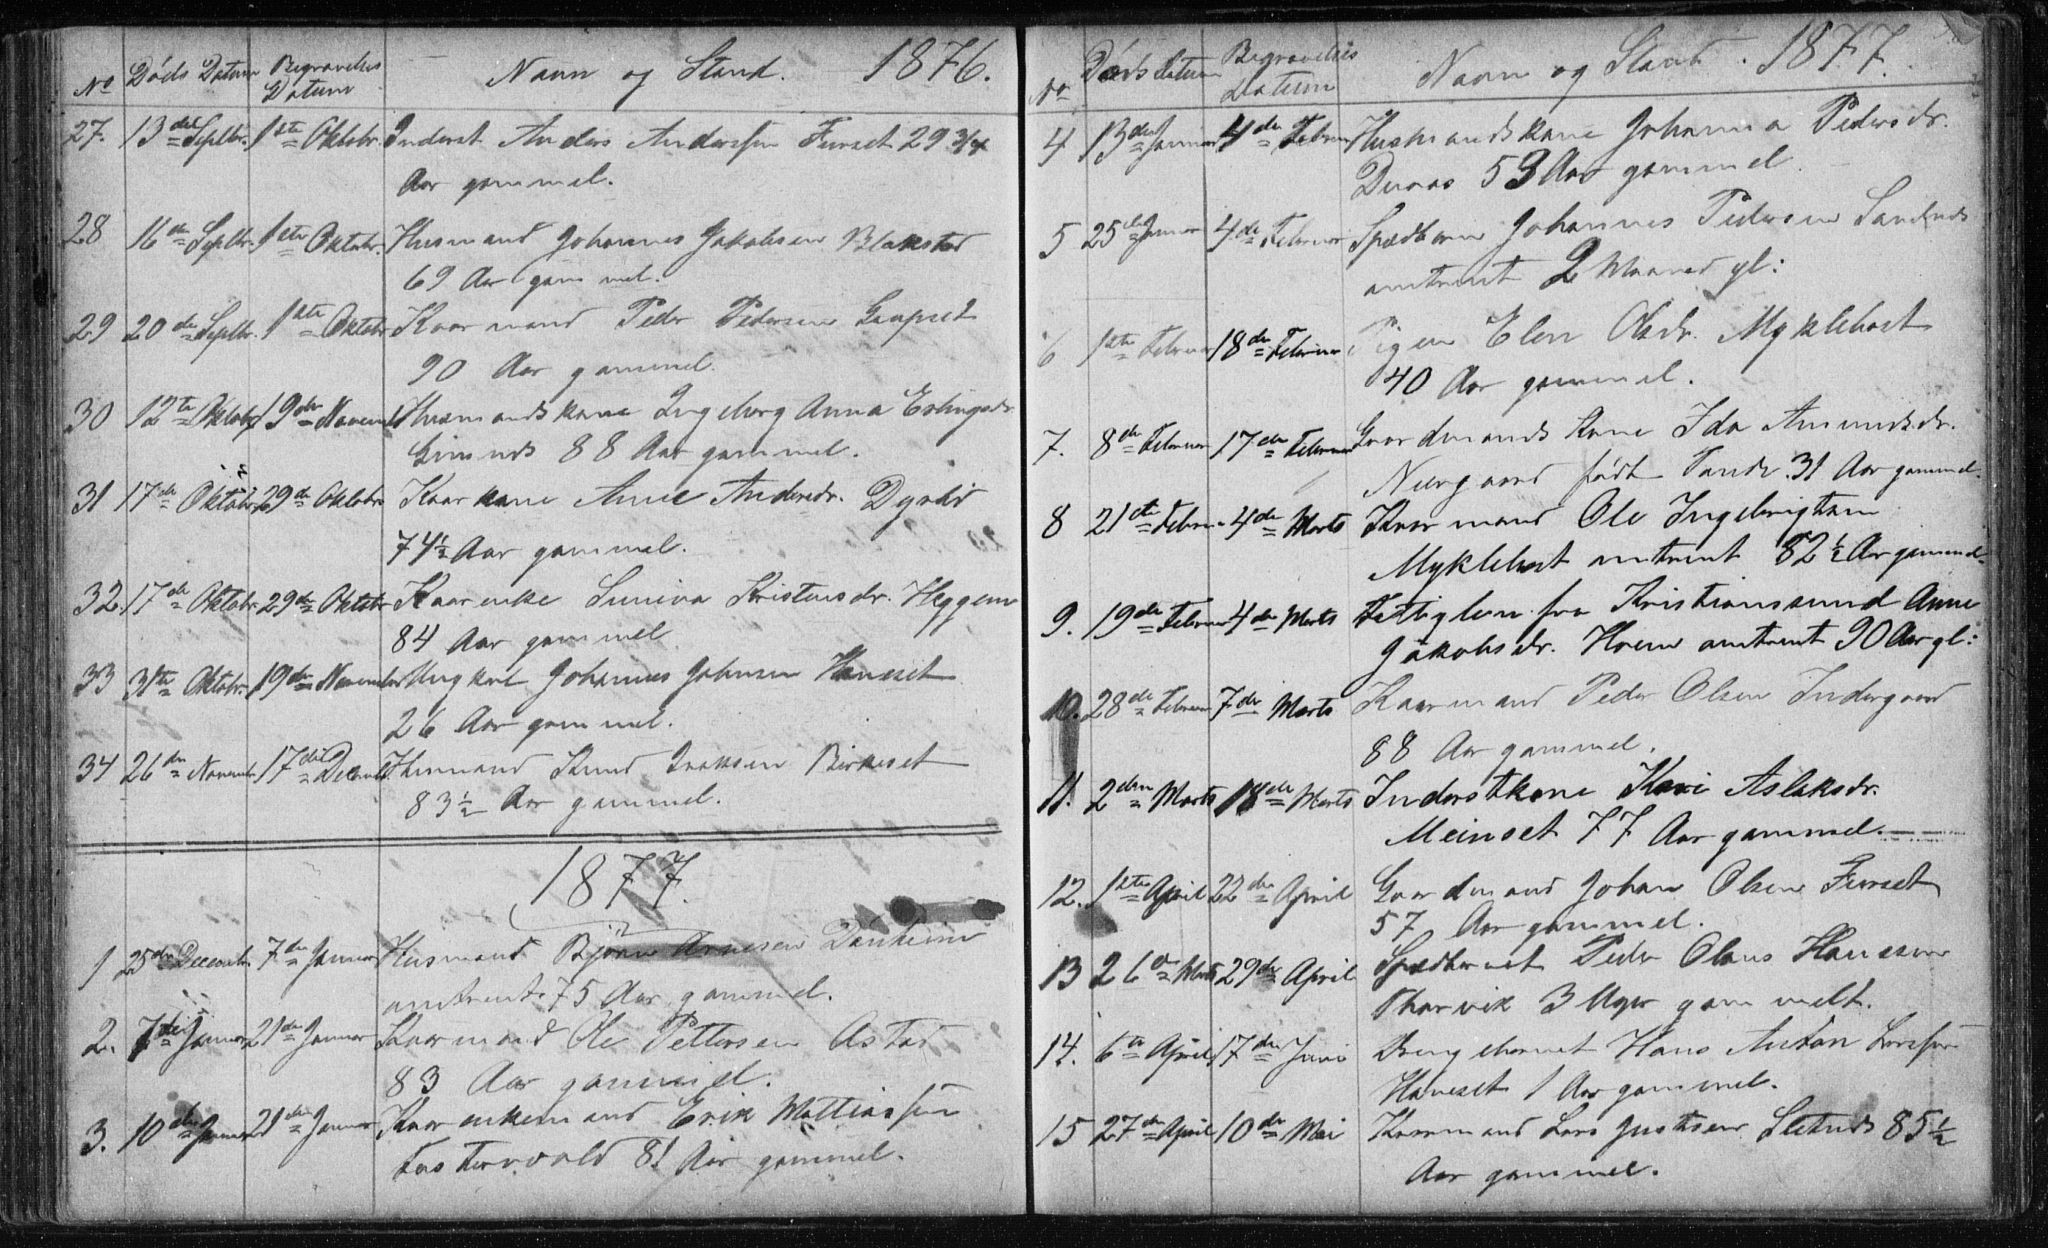 No Døds Datum Begravelses Datum Navn og Stand. 1876.
27. 13de Septbr. 1ste Oktobr. Inderst Anders Anderssen Furset 29 3/4
Aar gammel.
28 16de Septbr. 1ste Oktobr. Husmand Johannes Jakobsen Blakstad
69 Aar gammel.
29 20de Septbr. 1ste Oktobr Kaarmand Peder Pedersen Gaupset
90 Aar gammel.
30 12te Oktobr 19de Novemb Husmandskone Ingeborg Anna Erlingsdr.
88 Aar gammel.
31 17de Oktobr 29de Oktobr. Kaarkone Anne Andersdr. Dyrlid
74 1/2 Aar gammel.
32. 17de Oktobr. 29de Oktobr Kaarenke Suniva Kristensdr. Heggem
84 Aar gammel
33 31te Oktobr. 19de Novemb Ungkarl Johannes Johnsen Hanset
26 Aar gammel.
34 26de Novembr. 17de Decemb Husmand Knud Isaksen Birkeset
83 1/2 Aar gammel.
1877.
1 25de Decemb 7de Januar Husmand Bjørn Arnesen Danheim
omtrent 75 Aar gammel.
2. 7de Januar 21de Januar Kaarmand Ole Pettersen Astad
83 Aar gammel.
3. 10de Januar 21de Januar Kaarenkemand Erik Mattiassen
Fostervold 81 Aar gammel.
No Døds Datum Begravelses Datum Navn og Stand. 1877.
4 13de Januar 4de Februar Husmandskone Johanna Pedersdr.
53 Aar gammel
5 25de Januar 4de Februar Spædbarn Johannes Pedersen
omtrent 2 Maaned gl:
6 1ste Februar 18de Februar Pigen Elen Olsdr. Myklebost
40 Aar gammel.
7. 8de Februar 17de Februar Gaardmands Kone Ida Amundsdr.
Neergaard født 31 Aar gammel.
8 21de Februar 4de Marts Kaarmand Ole Ingebrigtsen
Myklebost omtrent 82 1/2 Aar gammel.
9. 19de Februar 4de Marts Fattiglem fra Kristianssund Anne
Jakobsdr. Hoem omtrent 90 Aar gl:
10. 28de Februar 7de Marts Kaarmand Peder Olsen Indergaard
88 Aar gammel.
11. 2den Marts 18de Marts Inderstkone Kari Aslaksdr.
Meinset 77 Aar gammel.
12. 1ste April 22de April Gaardmand Johan Olsen Furset
57 Aar gammel.
13 26de Marts 29de April Spædbarnet Peder Olaus Hanssen
Thorvik 3 Uger gammelt.
14. 6te April 17de Juni Drengebarnet Hans Anton Larssen
Hanset 1 Aar gammel.
15 27de April 10de Mai Kaarmand Lars Justsen 85 1/2
Aar gammel.